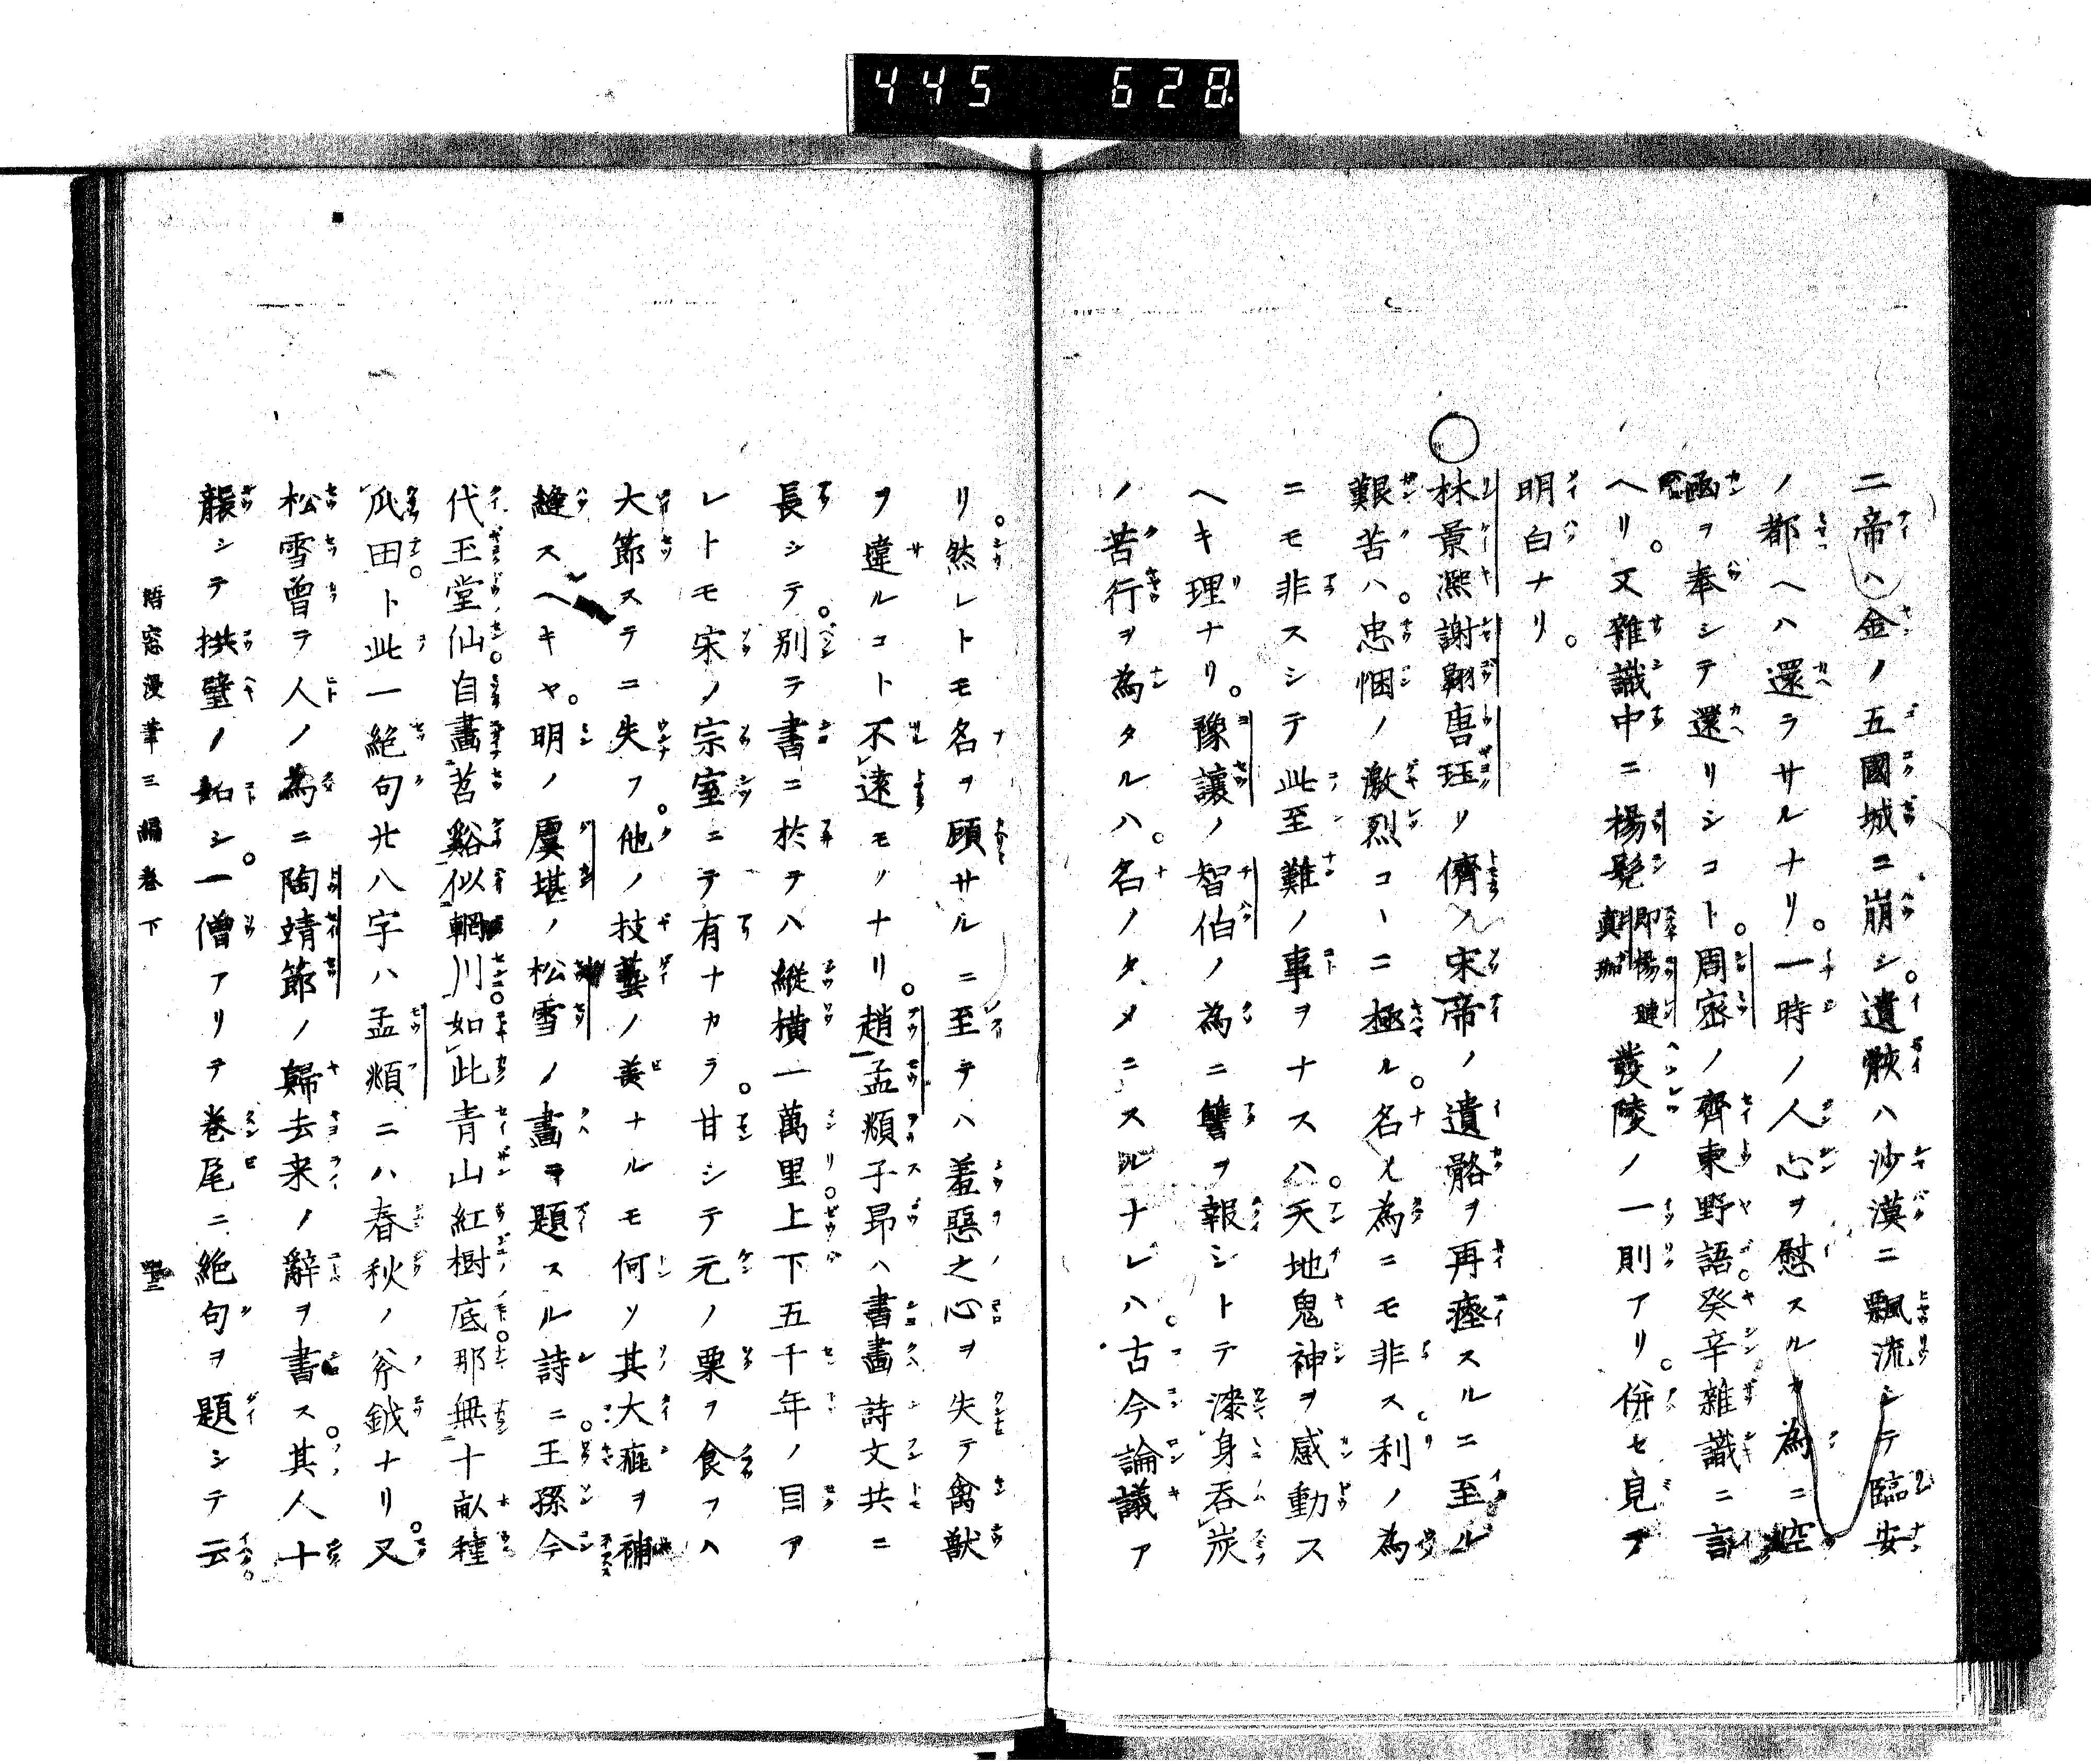 445 628
二帝ハ金ノ五國城ニ崩シ。遺骸ハ沙漠ニ飄流シテ臨安
ノ都ヘハ還ラサルナリ。一時ノ人心ヲ慰スルカ為ニ空
函ヲ奉シテ還リシコト。周密ノ齊東野語。癸辛雜識ニ言
ヘリ。又雜識中ニ楊髠即楊璉真珈發陵ノ一則アリ。併セ見テ
明白ナリ。
林景凞謝翺唐珏リ儕ノ宋帝ノ遺骼ヲ再瘞スルニ至ル
艱苦ハ。忠悃ノ激烈コヽニ極ル。名ノ為ニモ非ス。利ノ為
ニモ非スシテ此至難ノ事ヲナスハ。天地鬼神ヲ感動ス
ヘキ理ナリ。豫讓ノ智伯ノ為ニ讐ヲ報シトテ漆身呑炭
ノ苦行ヲ為タルハ。名ノタメニスルナレハ。古今論議ア
リ。然レトモ名ヲ顧サルニ至テハ羞惡之心ヲ失テ禽獸
ヲ違ルコト不遠モノナリ。趙孟頫子昂ハ書畵詩文共ニ
長シテ。別テ書ニ於テハ縱橫一萬里。上下五千年ノ目ア
レトモ宋ノ宗室ニテ有ナカラ。甘シテ元ノ粟ヲ食フハ
大節ステニ失フ。他ノ技藝ノ美ナルモ何ソ其大疵ヲ補
縫スヘキヤ。明ノ虞堪ノ松雪ノ畵ヲ題スル詩ニ。王孫今
代玉堂仙。自畵苕谿似輞川。如此青山紅樹底。那無十畝種
瓜田。ト此一絶句廿八字ハ孟頫ニハ春秋ノ斧鉞ナリ。又
松雪曾ヲ人ノ為ニ陶靖節ノ歸去来ノ辭ヲ書ス。其人十
襲シテ拱璧ノ如シ。一僧アリテ卷尾ニ絶句ヲ題シテ云
梧窓漫筆三編卷下